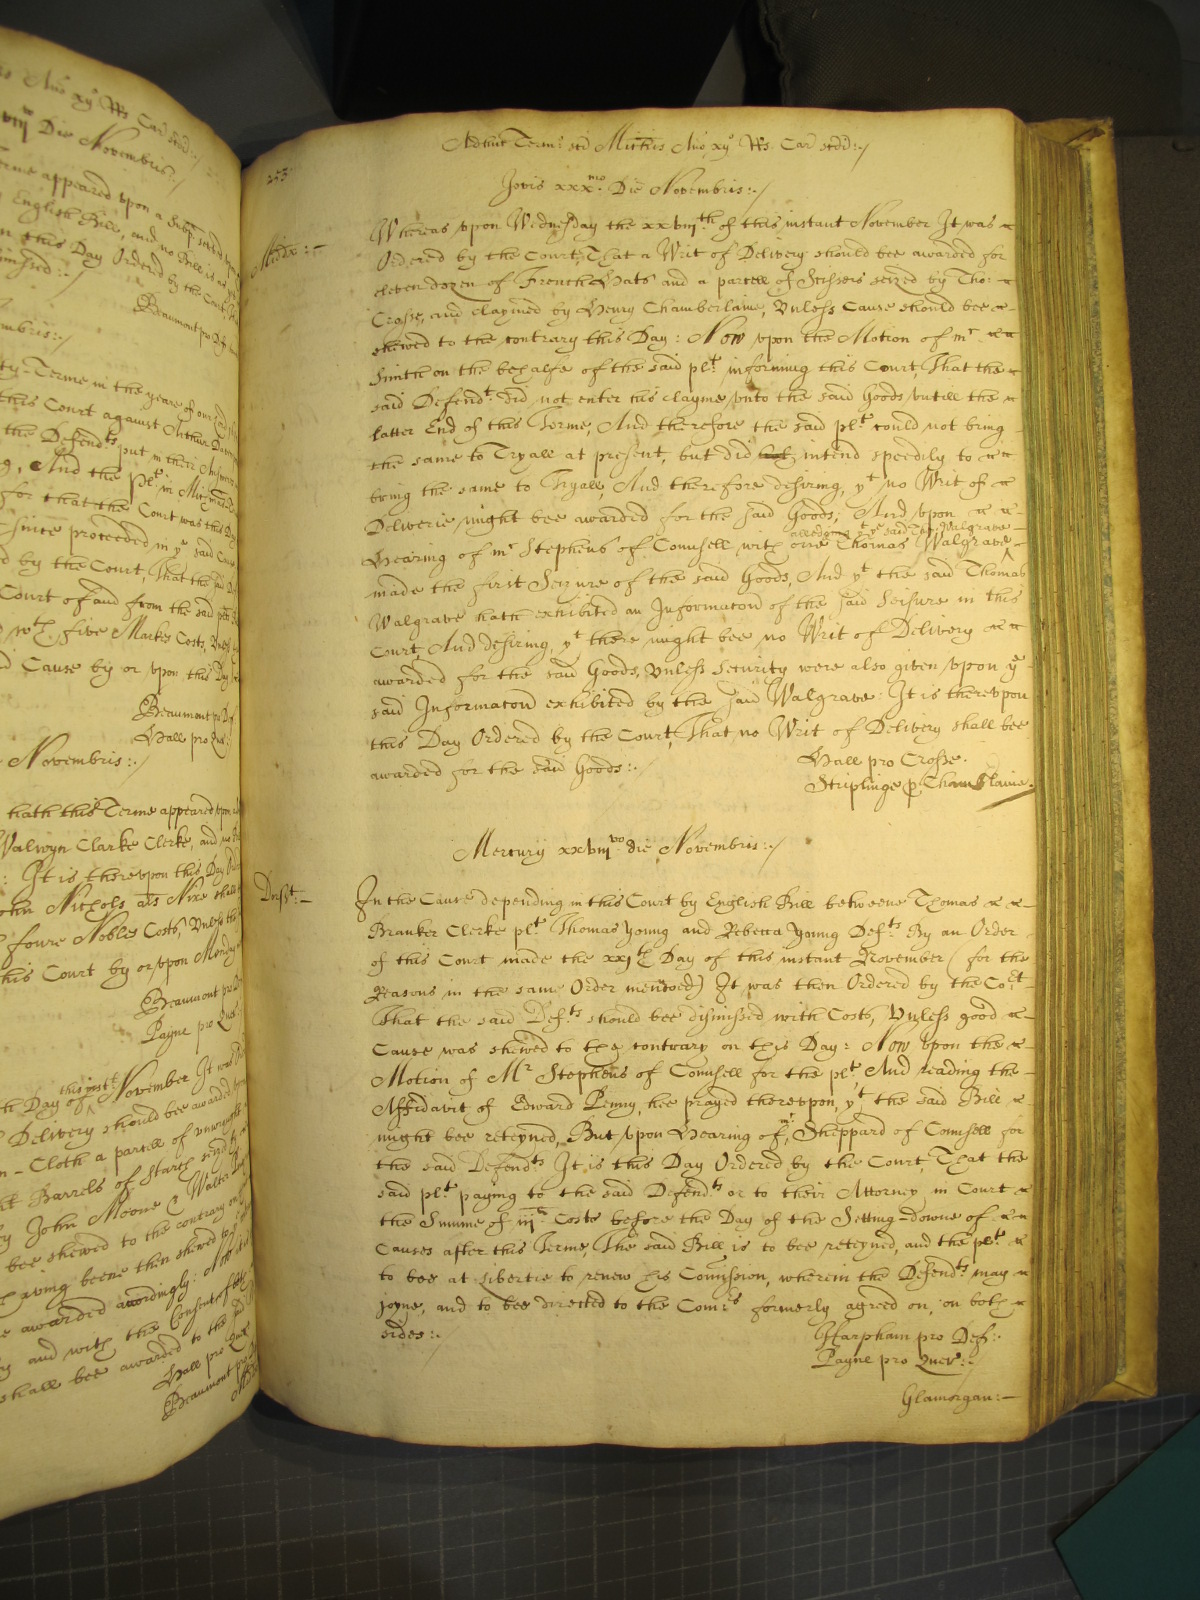 Anno xv Rs Car
Die Novembris:/
Terme appeared upon a Subp served upon
English Bill, and no Bill is as yet
this Day Ordered by the Court
Beaumont pro Def
Terme in the yeare of our
this Court against Arthur
the Defendts put in their Answere
And the plt in Michmas
for that the Court was this Day
since proceeded in ye said Cause
by the Court, That the said
Court of and from the said
wth five Markes Costs, Unles
Cause by or upon this Day
Beaumont pro Def
Hall pro Quer:
Novembris:/
hath this Terme appeared upon
Walwyn Clarke Clerke, and no
It is thereupon this Day
John Nichols als Nixe shall
foure Nobles Costs, Unless
this Court by or upon Monday
Beaumont pro
Payne pro Quer:
Day of this instt November It was
Delivery should bee awarded
Cloth a parcell of
Barrels of Starch seized
John Moone & Walter
bee shewed to the contrary on
having beene then shewed
awarded accordingly: Now
and with the Consent of
shall bee awarded to the said
Hall pro Quer
Beaumont pro
253
Adhuc Term: sci Michis Ano xv Rs Car scdi:/
Jovis xxxmo Die Novembris:/
Middx:-
Whereas upon Wednesday the xxviijth of this instant November It was
Ordered by the Court, That a Writ of Delivery should bee awarded for
eleven dozen of French Hats and a parcell of Scissers seized by Tho:
Crosse, and claymed by Henry Chamberlaine, Unless Cause should bee
shewed to the contrary this Day: Now upon the Motion of mr
Smith on the behalfe of the said plt informing this Court, That the
said Defendt did not enter his clayme unto the said Goods untill the
latter End of this Terme, And therefore the said plt could not bring
the same to Tryall at present, but did intend speedily to
bring the same to Tryall, And therefore desiring, yt no Writ of
Deliverie might bee awarded for the said Goods; And upon
Hearing of mr Stephens of Counsell with one Thomas Walgrave
alledging yt ye said Tho: Walgrave
made the first Seizure of the said Goods, And yt the said Thomas
Walgrave hath exhibited an Informacon of the said Seisure in this
Court, And desiring, yt there might bee no Writ of Delivery
awarded for the said Goods, Unless Security were also given upon ye
said Informacon exhibited by the said Walgrave: It is thereupon
this Day Ordered by the Court, That no Writ of Delivery shall bee
awarded for the said Goods:/
Hall pro Crosse.
Striplinge p Chamblaine.
Mercurij xxviijvo die Novembris:/
Dorset:-
In the Cause depending in this Court by English Bill betweene Thomas
Branker Clerke plt Thomas Young and Rebecca Young Defts By an Order
of this Court made the xxjth Day of this instant November (for the
Reasons in the same Order mencoed) It was then Ordered by the Cort
That the said Defts should bee dismissed with Costs, Unless good
Cause was shewed to the contrary on this Day: Now upon the
Motion of Mr Stephens of Counsell for the plt And reading the
Affidavit of Edward Penny, hee prayed thereupon, yt the said Bill
might bee reteyned, But upon Hearing of mr Sheppard of Counsell for
the said Defendts It is this Day Ordered by the Court, That the
said plt paying to the said Defendts or to their Attorney in Court
the Summe of iijli Costs before the Day of the Setting-downe of
Causes after this Terme, The said Bill is to bee reteyned, and the plt
to bee at libertie to renew his Comission, wherein the Defendts may
joyne, and to bee directed to the Comrs formerly agreed on, on both
sides:/
Harpham pro Def:
Payne pro Quer:/
Glamorgan:-